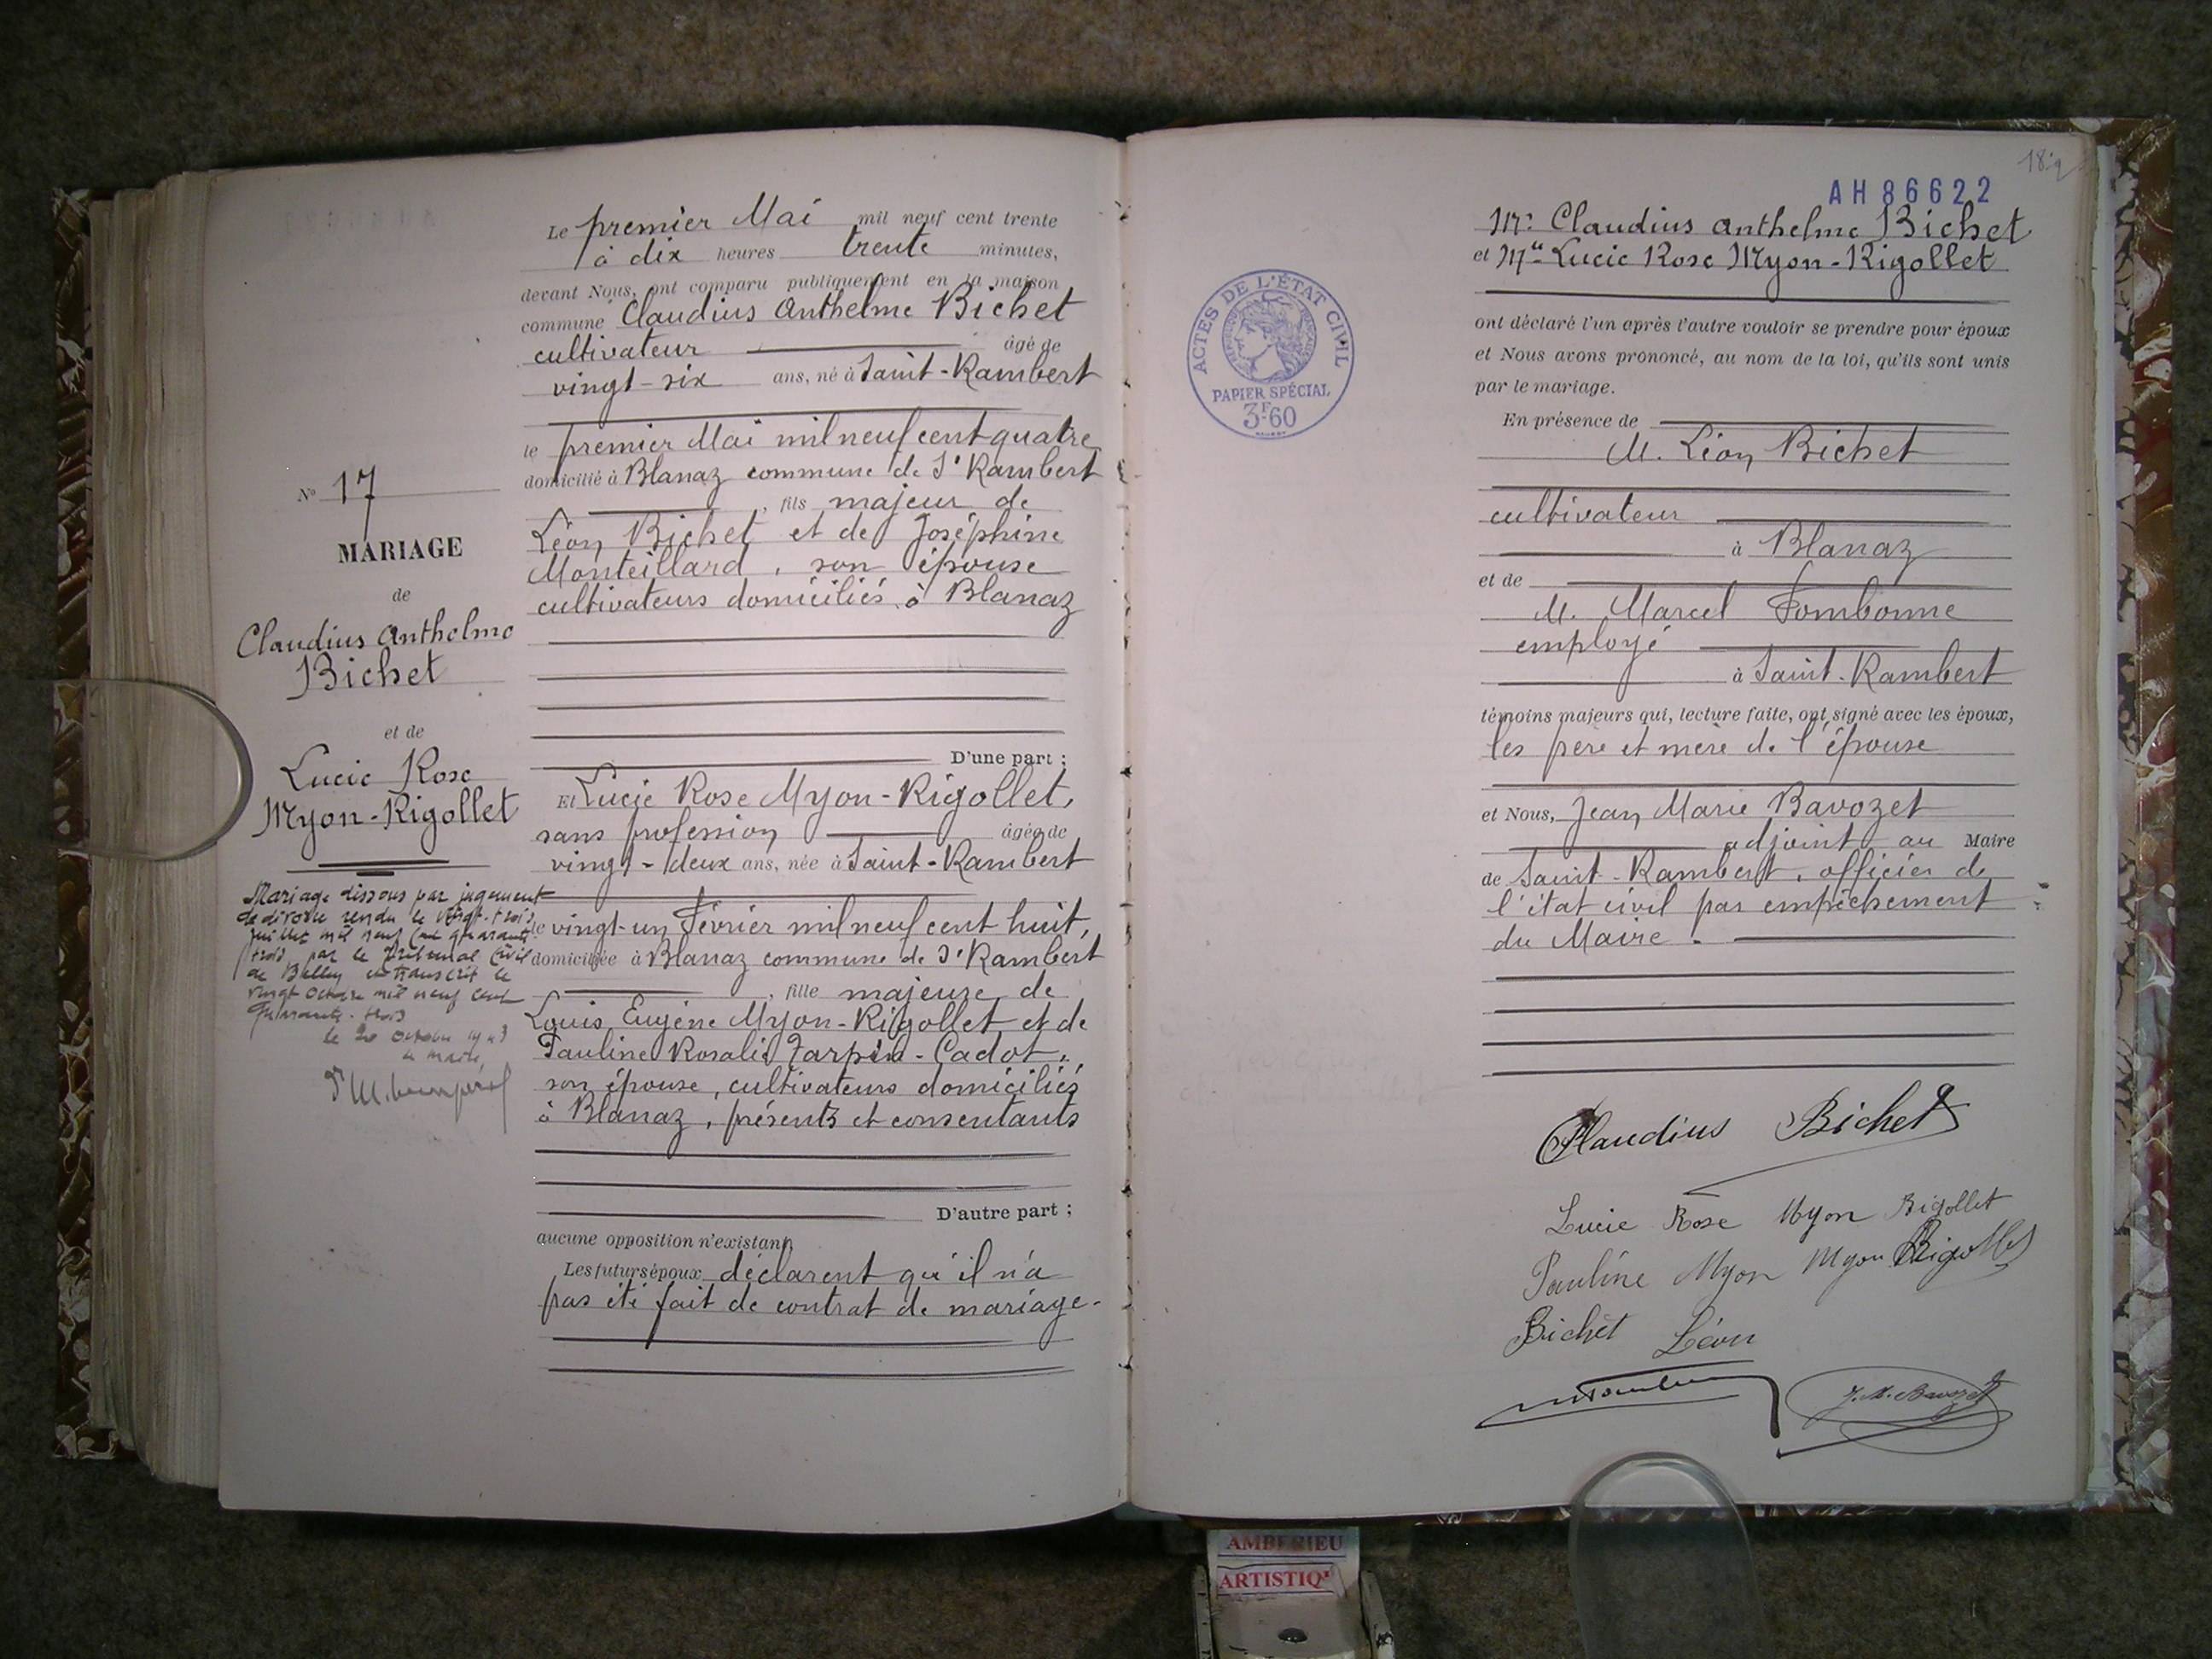 Le premier Mai mil neuf cent trente
à dix heures trente minutes,
devant Nous, ont comparu publiquement en la maison
commune Claudius Anthelme Bichet
cultivateur âgé de
vingt-six ans, né à Saint-Rambert
le premier Mai mil neuf cent quatre
domicilié à Blanaz commune de St Rambert
, fils majeur de
Léon Bichet et de Joséphine
Monteillard, son épouse
cultivateurs domiciliés à Blanaz
D'une part ;
Et Lucie Rose Myon-Rigollet,
sans profession âgée de
vingt-deux ans, née à Saint-Rambert
le vingt-un Février mil neuf cent huit,
domiciliée à Blanaz commune de St Rambert
, fille majeure de
Louis Eugène Myon-Rigollet et de
Pauline Rosalie Zarpin-Cadot,
son épouse, cultivateurs domiciliés
à Blanaz, présents et consentants
D'autre part ;
aucune opposition n'existant
Les futurs époux déclarent qu'il n'a
pas été fait de contrat de mariage.
N° 17
MARIAGE
de
Claudius Anthelme
Bichet
et de
Lucie Rose
Myon-Rigollet
Mariage dissous par jugement
de divorce rendu le vingt-trois
juillet mil neuf cent quarante
trois par le Tribunal Civil
de Belley et transcrit le
vingt octobre mil neuf cent
quarante-trois
le 20 octobre 1943
Le Maire,
18
AH 86622
Mr Claudius Anthelme Bichet
et Mlle Lucie Rose Myon-Rigollet
ont déclaré l'un après l'autre vouloir se prendre pour époux
et Nous avons prononcé, au nom de la loi, qu'ils sont unis
par le mariage.
En présence de
M. Léon Bichet
cultivateur
à Blanaz
et de
M. Marcel Tombonne
employé
à Saint-Rambert
témoins majeurs qui, lecture faite, ont signé avec les époux,
les père et mère de l'épouse
et Nous, Jean Marie Bavozet
adjoint au Maire
de Saint-Rambert, officier de
l'état civil par empêchement
du Maire.
ACTES DE L'ÉTAT CIVIL
PAPIER SPÉCIAL
3F60
Claudius Bichet
Lucie Rose Myon Rigollet
Pauline Myon Myon Rigollet
Bichet Léon
J.M. Bavozet
AMBERIEU
ARTISTIQ